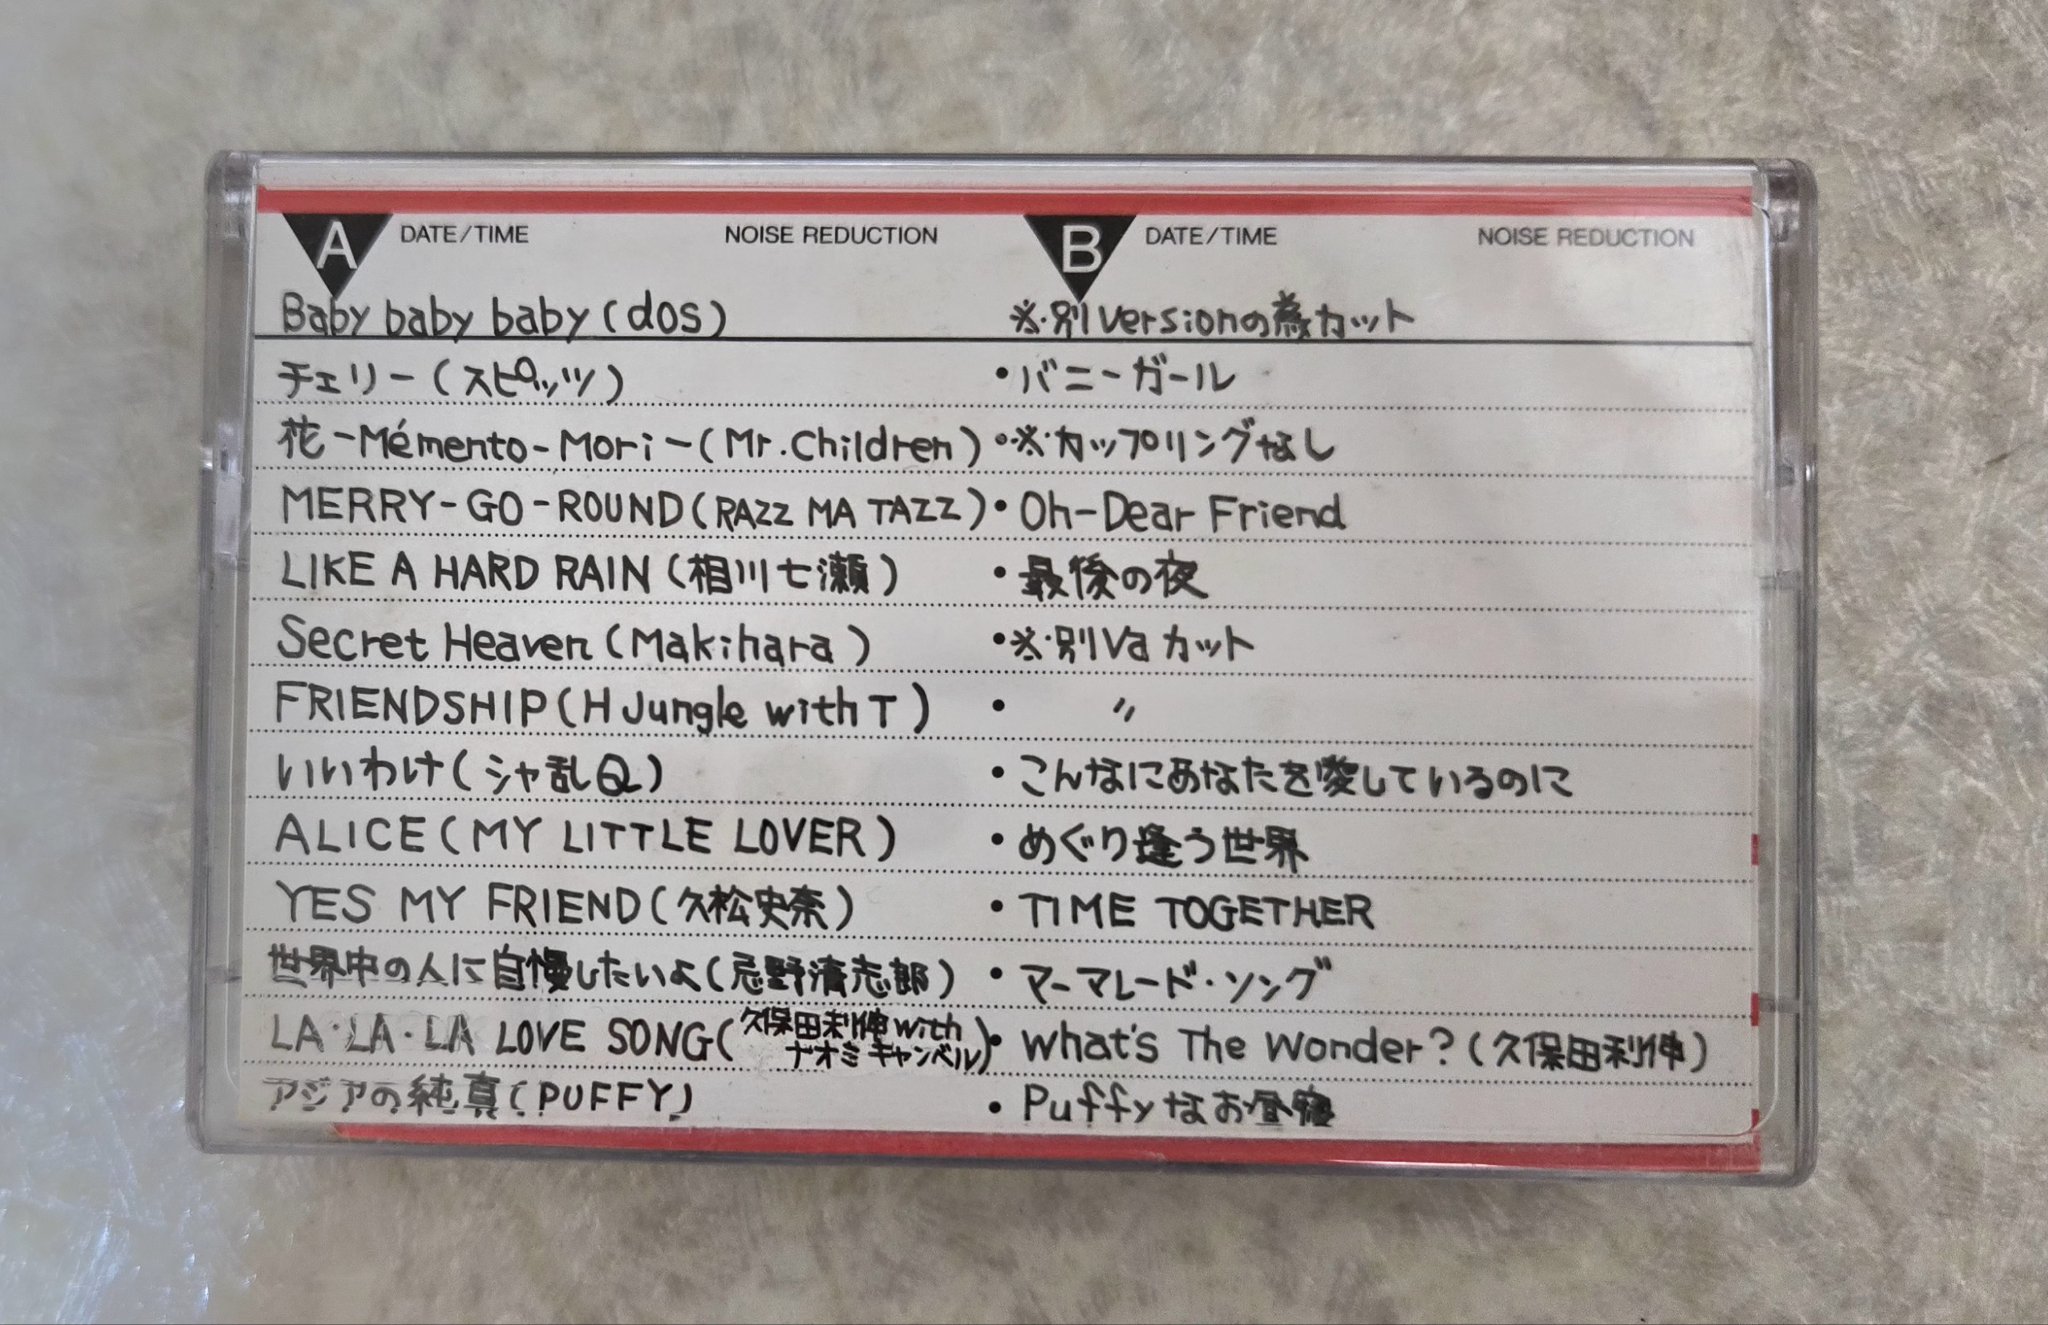 A DATE/TIME NOISE REDUCTION
Baby baby baby (dos)
チェリー (スピッツ)
花 -Mémento-Mori- (Mr.Children)
MERRY-GO-ROUND (RAZZ MA TAZZ)
LIKE A HARD RAIN (相川七瀬)
Secret Heaven (Makihara)
FRIENDSHIP (H Jungle with T)
いいわけ (シャ乱Q)
ALICE (MY LITTLE LOVER)
YES MY FRIEND (久松史奈)
世界中の人に自慢したいよ (忌野清志郎)
LA・LA・LA LOVE SONG (久保田利伸 with ナオミキャンベル)
アジアの純真 (PUFFY)
B DATE/TIME NOISE REDUCTION
※・別versionの為カット
・バニーガール
・※・カップリングなし
・Oh-Dear Friend
・最後の夜
・※・別Vaカット
・〃
・こんなにあなたを愛しているのに
・めぐり逢う世界
・TIME TOGETHER
・マーマレード・ソング
・What's The Wonder? (久保田利伸)
・Puffyなお昼寝